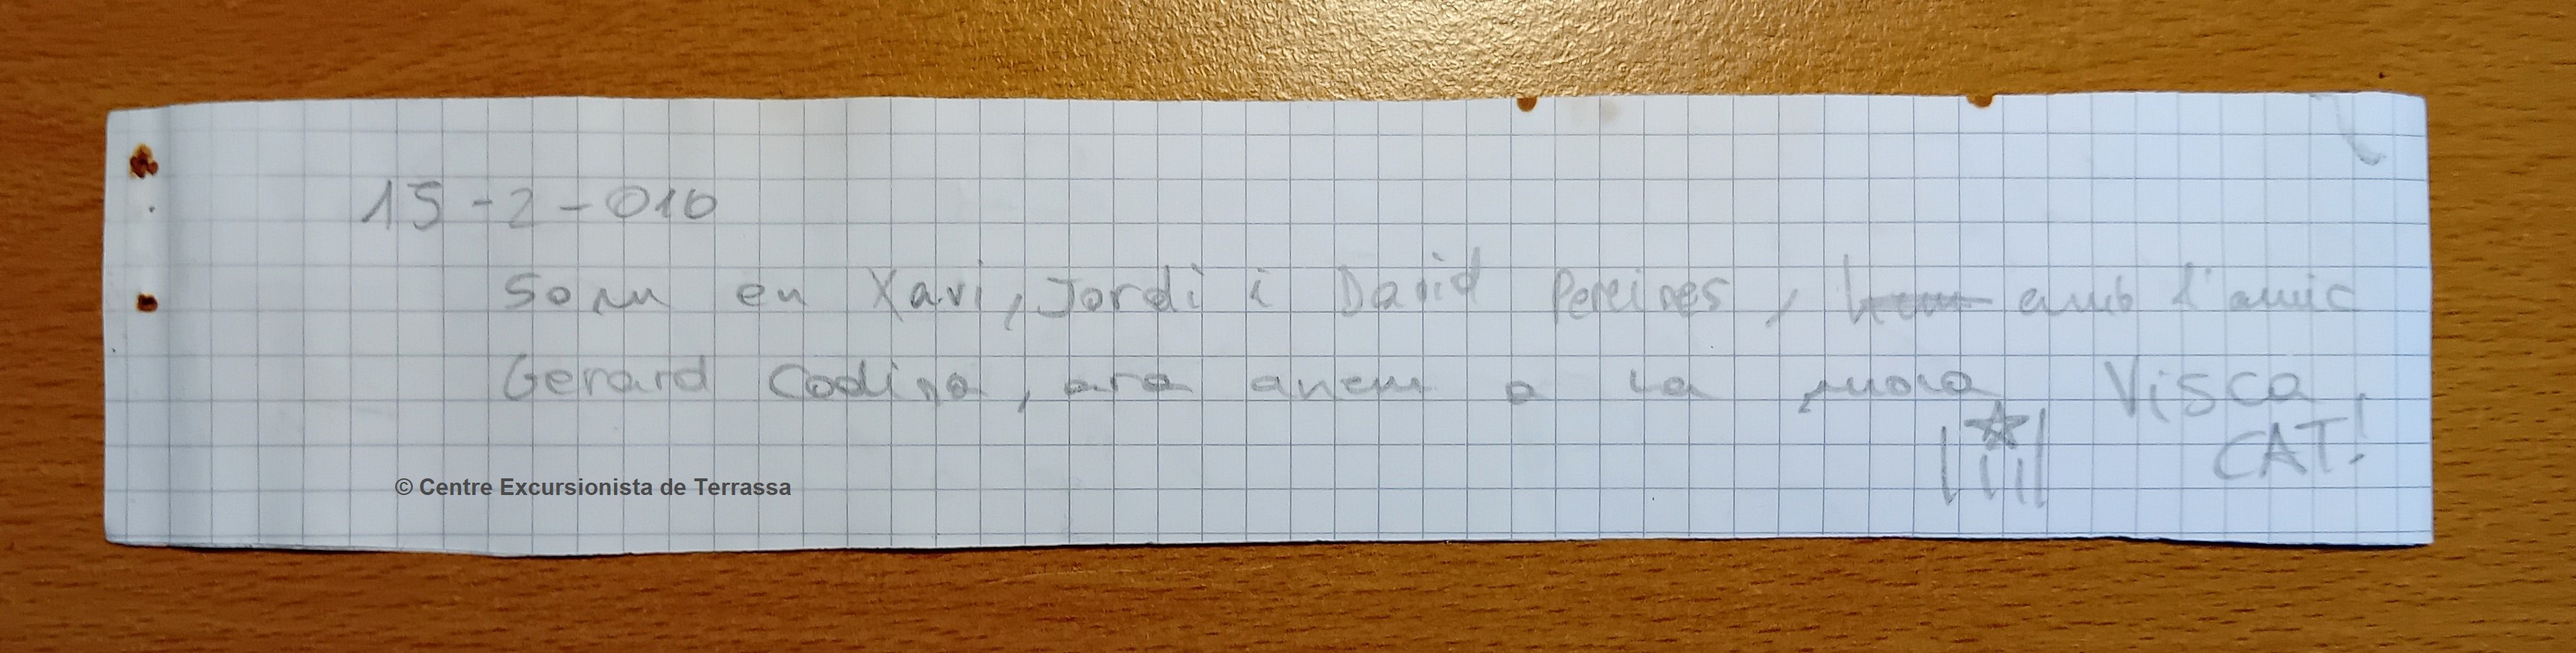 15-2-016
Som en Xavi, Jordi i David, amb l'amic
Gerard Codina, ara anem a la Visca
CAT!
© Centre Excursionista de Terrassa